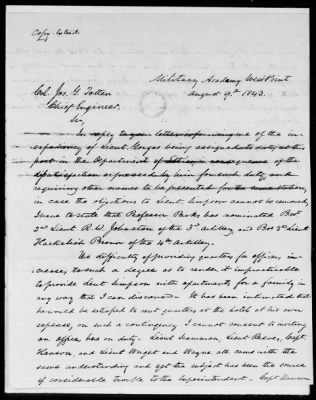 Copy - Extract
Military Academy West Point
August 9th 1843.
Col. Jos. G. Totten
Chief Engineer.
Sir,
In reply to your letter informing me of the im-
of Lieut Gorgas being assigned to duty at this
post in the Department of Ethics in consequence of the
expressed by him for such duty, and
requiring other names to be presented for the
in case the objections to Lieut. Simpson cannot be removed,
I have to state that Professor Parks has nominated Bvt
2nd Lieut R. W. Johnston of the 3d Artillery and Bvt 2d Lieut
Hackaliah Brown of the 4th Artillery.
The difficulty of providing quarters for officers, in-
creases, to such a degree as to render it impracticable
to provide Lieut Simpson with apartments, for a family in
any way that I can discover. It has been intimated that
he would be satisfied to rent quarters at the hotel at his own
expense, on such a contingency I cannot consent to
an officer here on duty. Lieut Scammon, Lieut Reeves, Capt
Keason, and Lieut and Wayne all came with the
same understanding and yet the subject has been the source
of considerable trouble to the Superintendent. Capt Keason